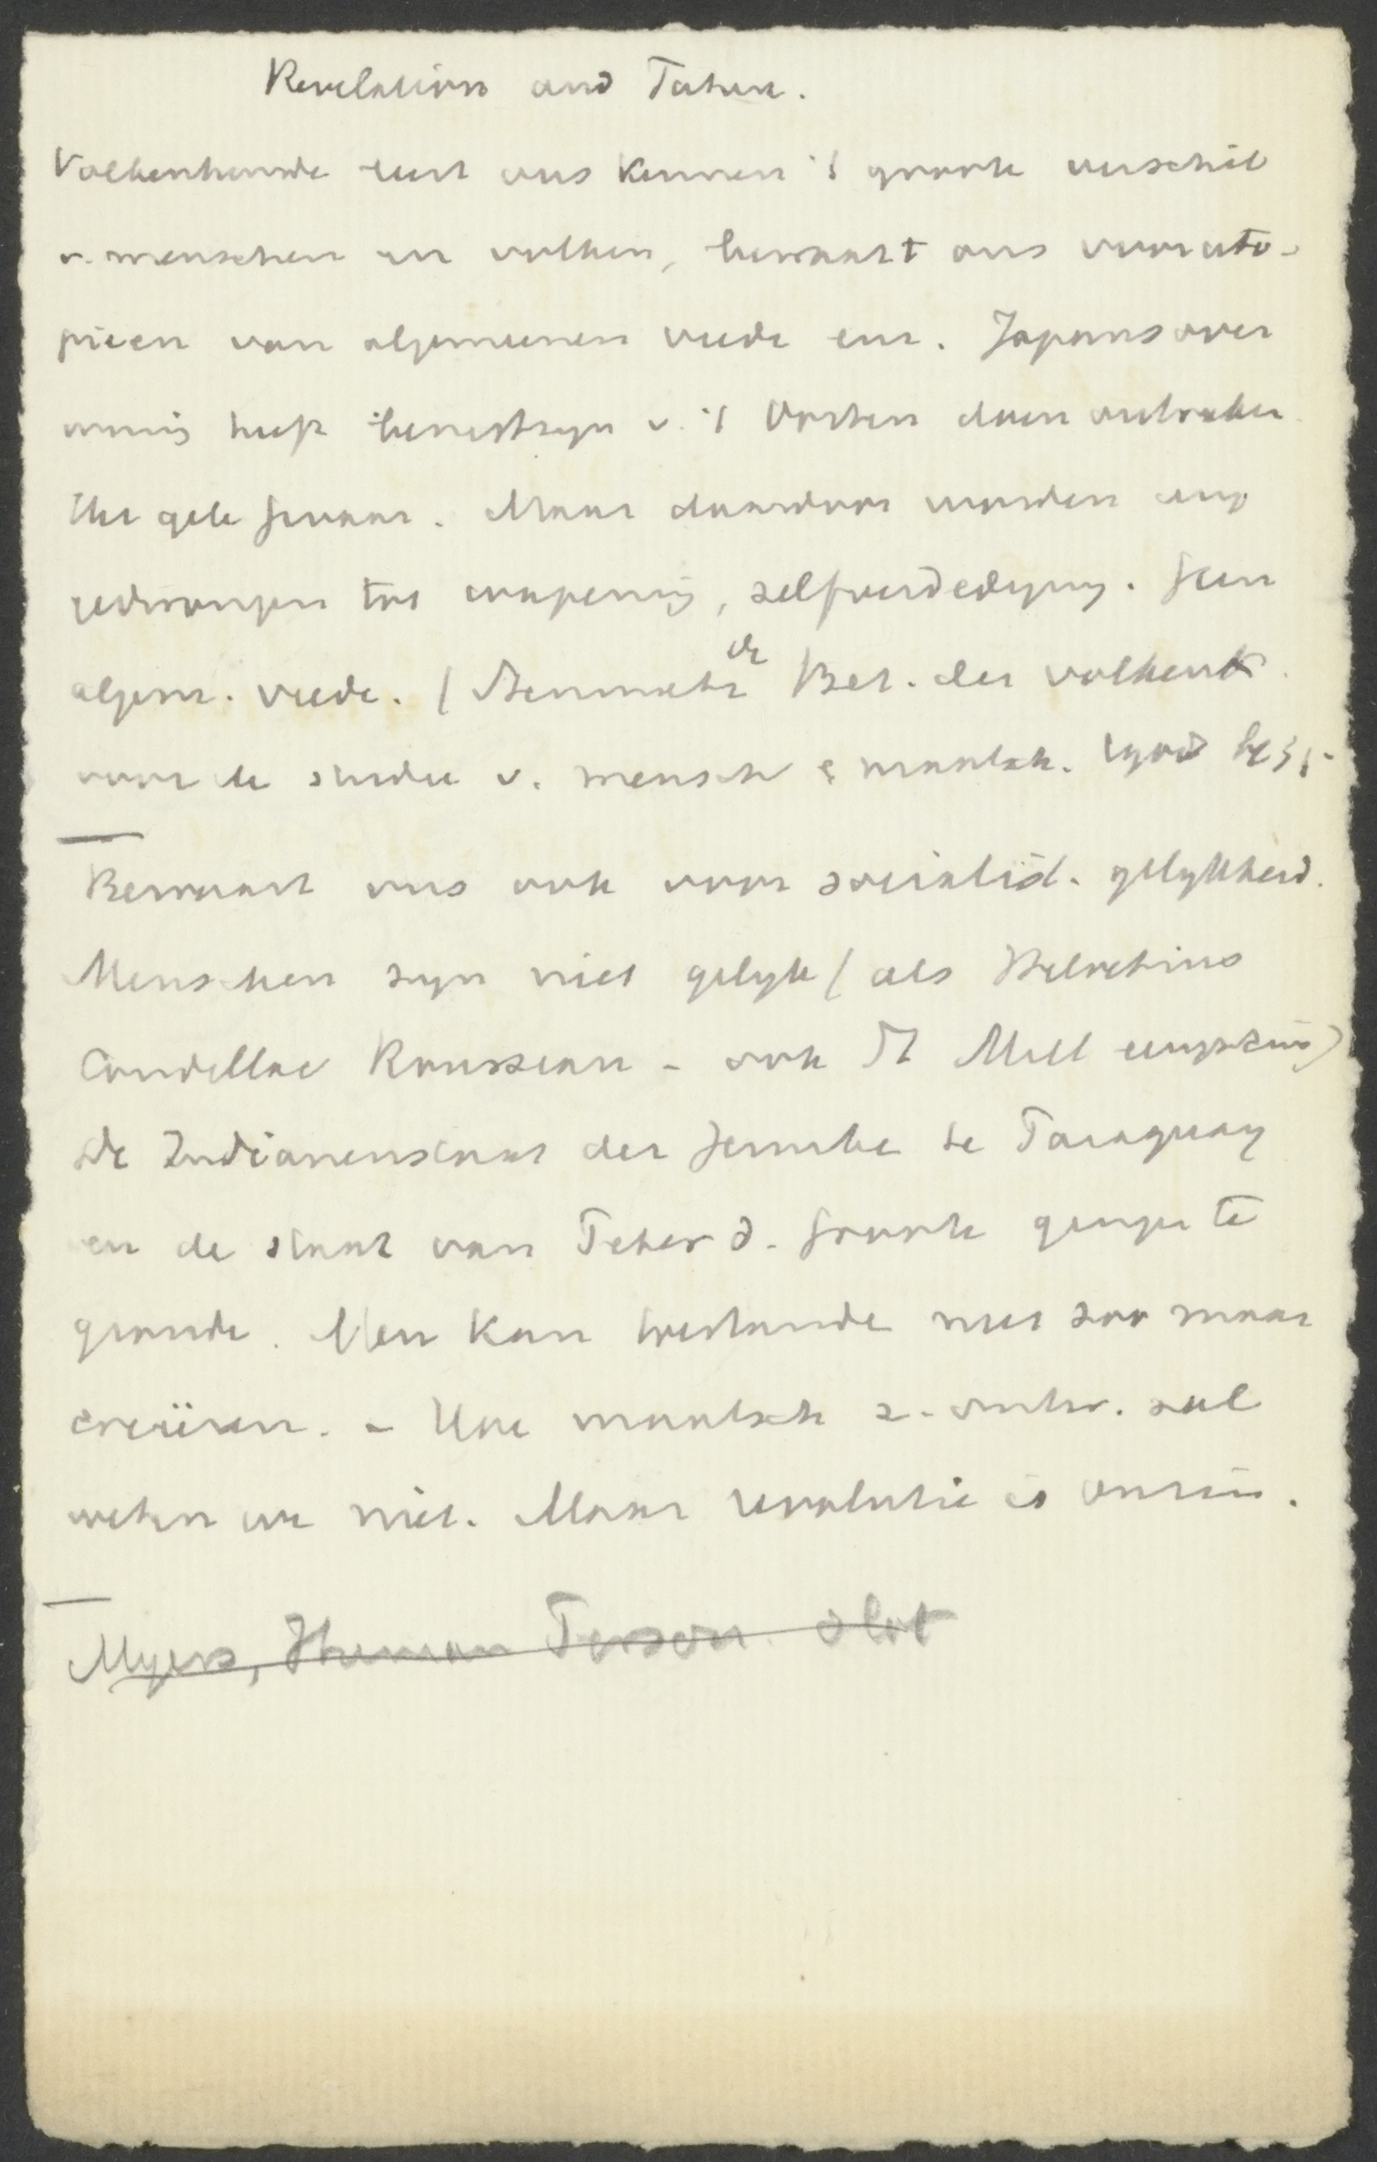 Revelation and Future.
Volkenkunde leert ons kennen 't groote verschil
v. menschen en volken, bewaart ons voor uto-
pieen van algemeenen vrede enz. Japans over
winning heeft bewustzijn v. 't Oosten doen ontwaken.
Het gele gevaar. Maar daardoor worden wij
gedwongen tot wapening, zelfverdediging. Geen
algem. vrede. (Steinmetz de Bet. der volkenk.
voor de studie v. mensch & maatsch. 1908 bl 31.
Bewaart ons ook voor socialist. gelijkheid.
Menschen zijn niet gelijk (als Helvetius
Condillac Rousseau - ook St Mill
De Indianenstaat der Jezuiten te Paraguay
en de staat van Peter d. Groote gingen te
gronde. Men kan toestanden niet zoo maar
creëeren. - Hoe maatsch z. ontw. zal
weten we niet. Maar revolutie is onzin.
Myers, Human Person. slot